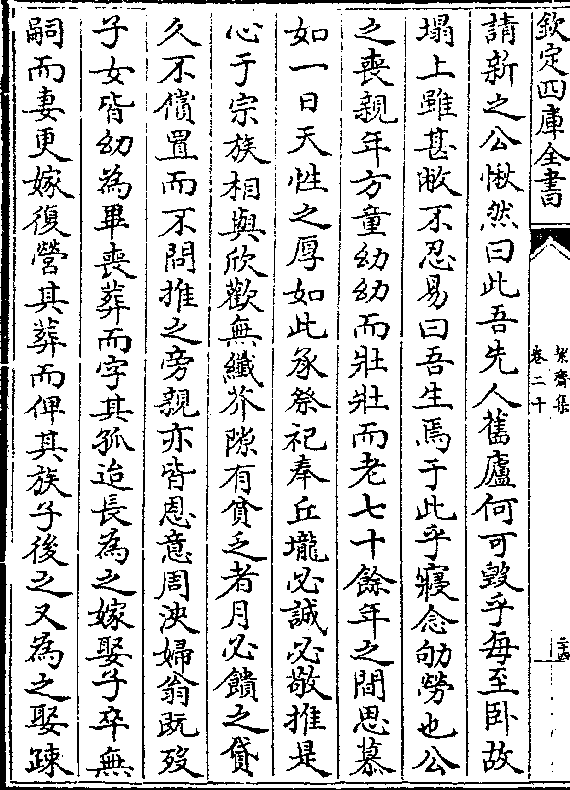 欽定四庫全書
絜齋集
卷二十
請新之公愀然曰此吾先人舊廬何可毀乎每至卧故
塌上雖甚敝不忍易曰吾生焉于此乎寢念劬勞也公
之喪親年方童幼幼而壯壯而老七十餘年之間思慕
如一日天性之厚如此承祭祀奉丘壠必誠必敬推是
心于宗族相與欣歡無纖芥隙有貧乏者月必饋之貸
久不償置而不問推之旁親亦皆恩意周浹婦翁既歿
子女皆幼為畢喪葬而字其孤迨長為之嫁娶子卒無
嗣而妻更嫁復營其葬而俾其族子後之又為之娶疎